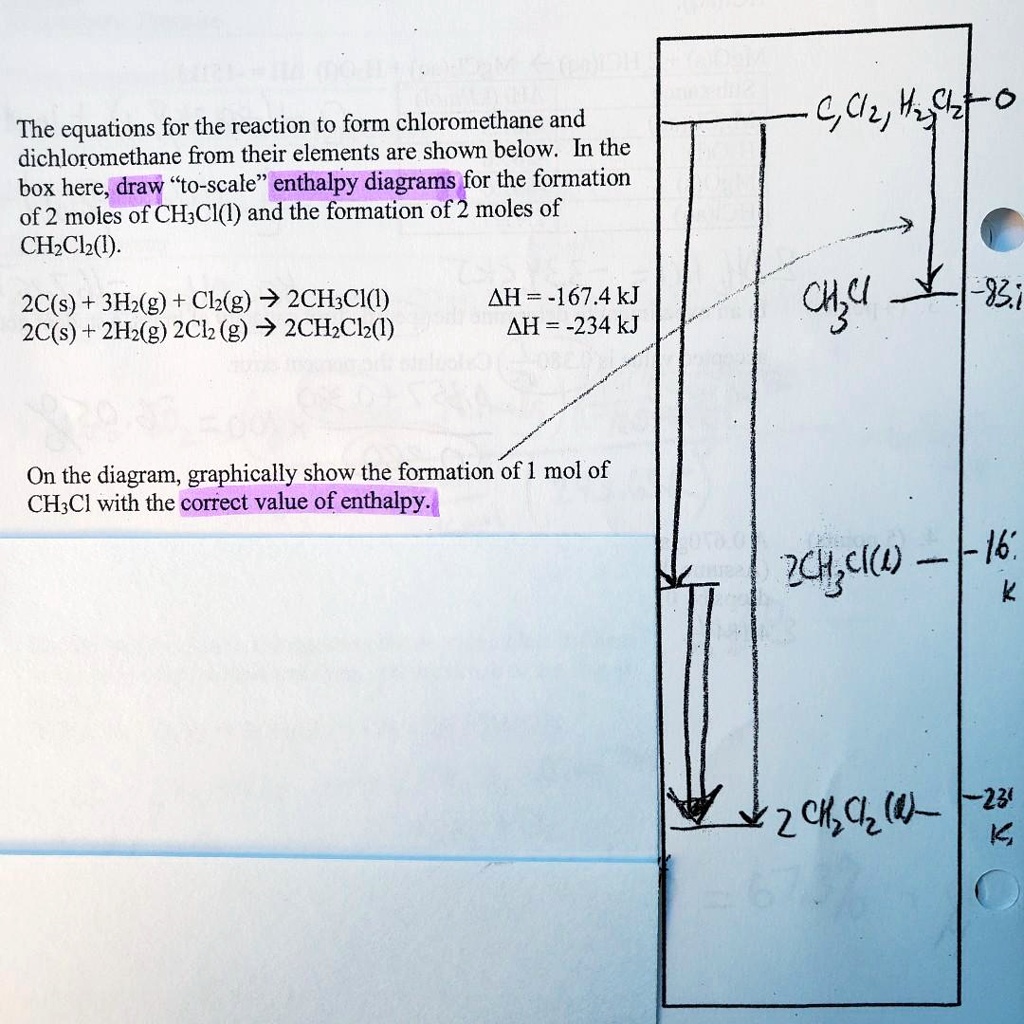 The equations for the reaction to form chloromethane and
dichloromethane from their elements are shown below. In the
box here, draw “to-scale” enthalpy diagrams for the formation
of 2 moles of CH3Cl(l) and the formation of 2 moles of
CH2Cl2(l).
2C(s) + 3H2(g) + Cl2(g) → 2CH3Cl(l) ΔH = -167.4 kJ
2C(s) + 2H2(g) 2Cl2 (g) → 2CH2Cl2(l) ΔH = -234 kJ
On the diagram, graphically show the formation of 1 mol of
CH3Cl with the correct value of enthalpy.
C, Cl2, H2, Cl2 0
CH3Cl -83.
2CH3Cl(l) -16
K
2 CH2Cl2 (l) -23
K